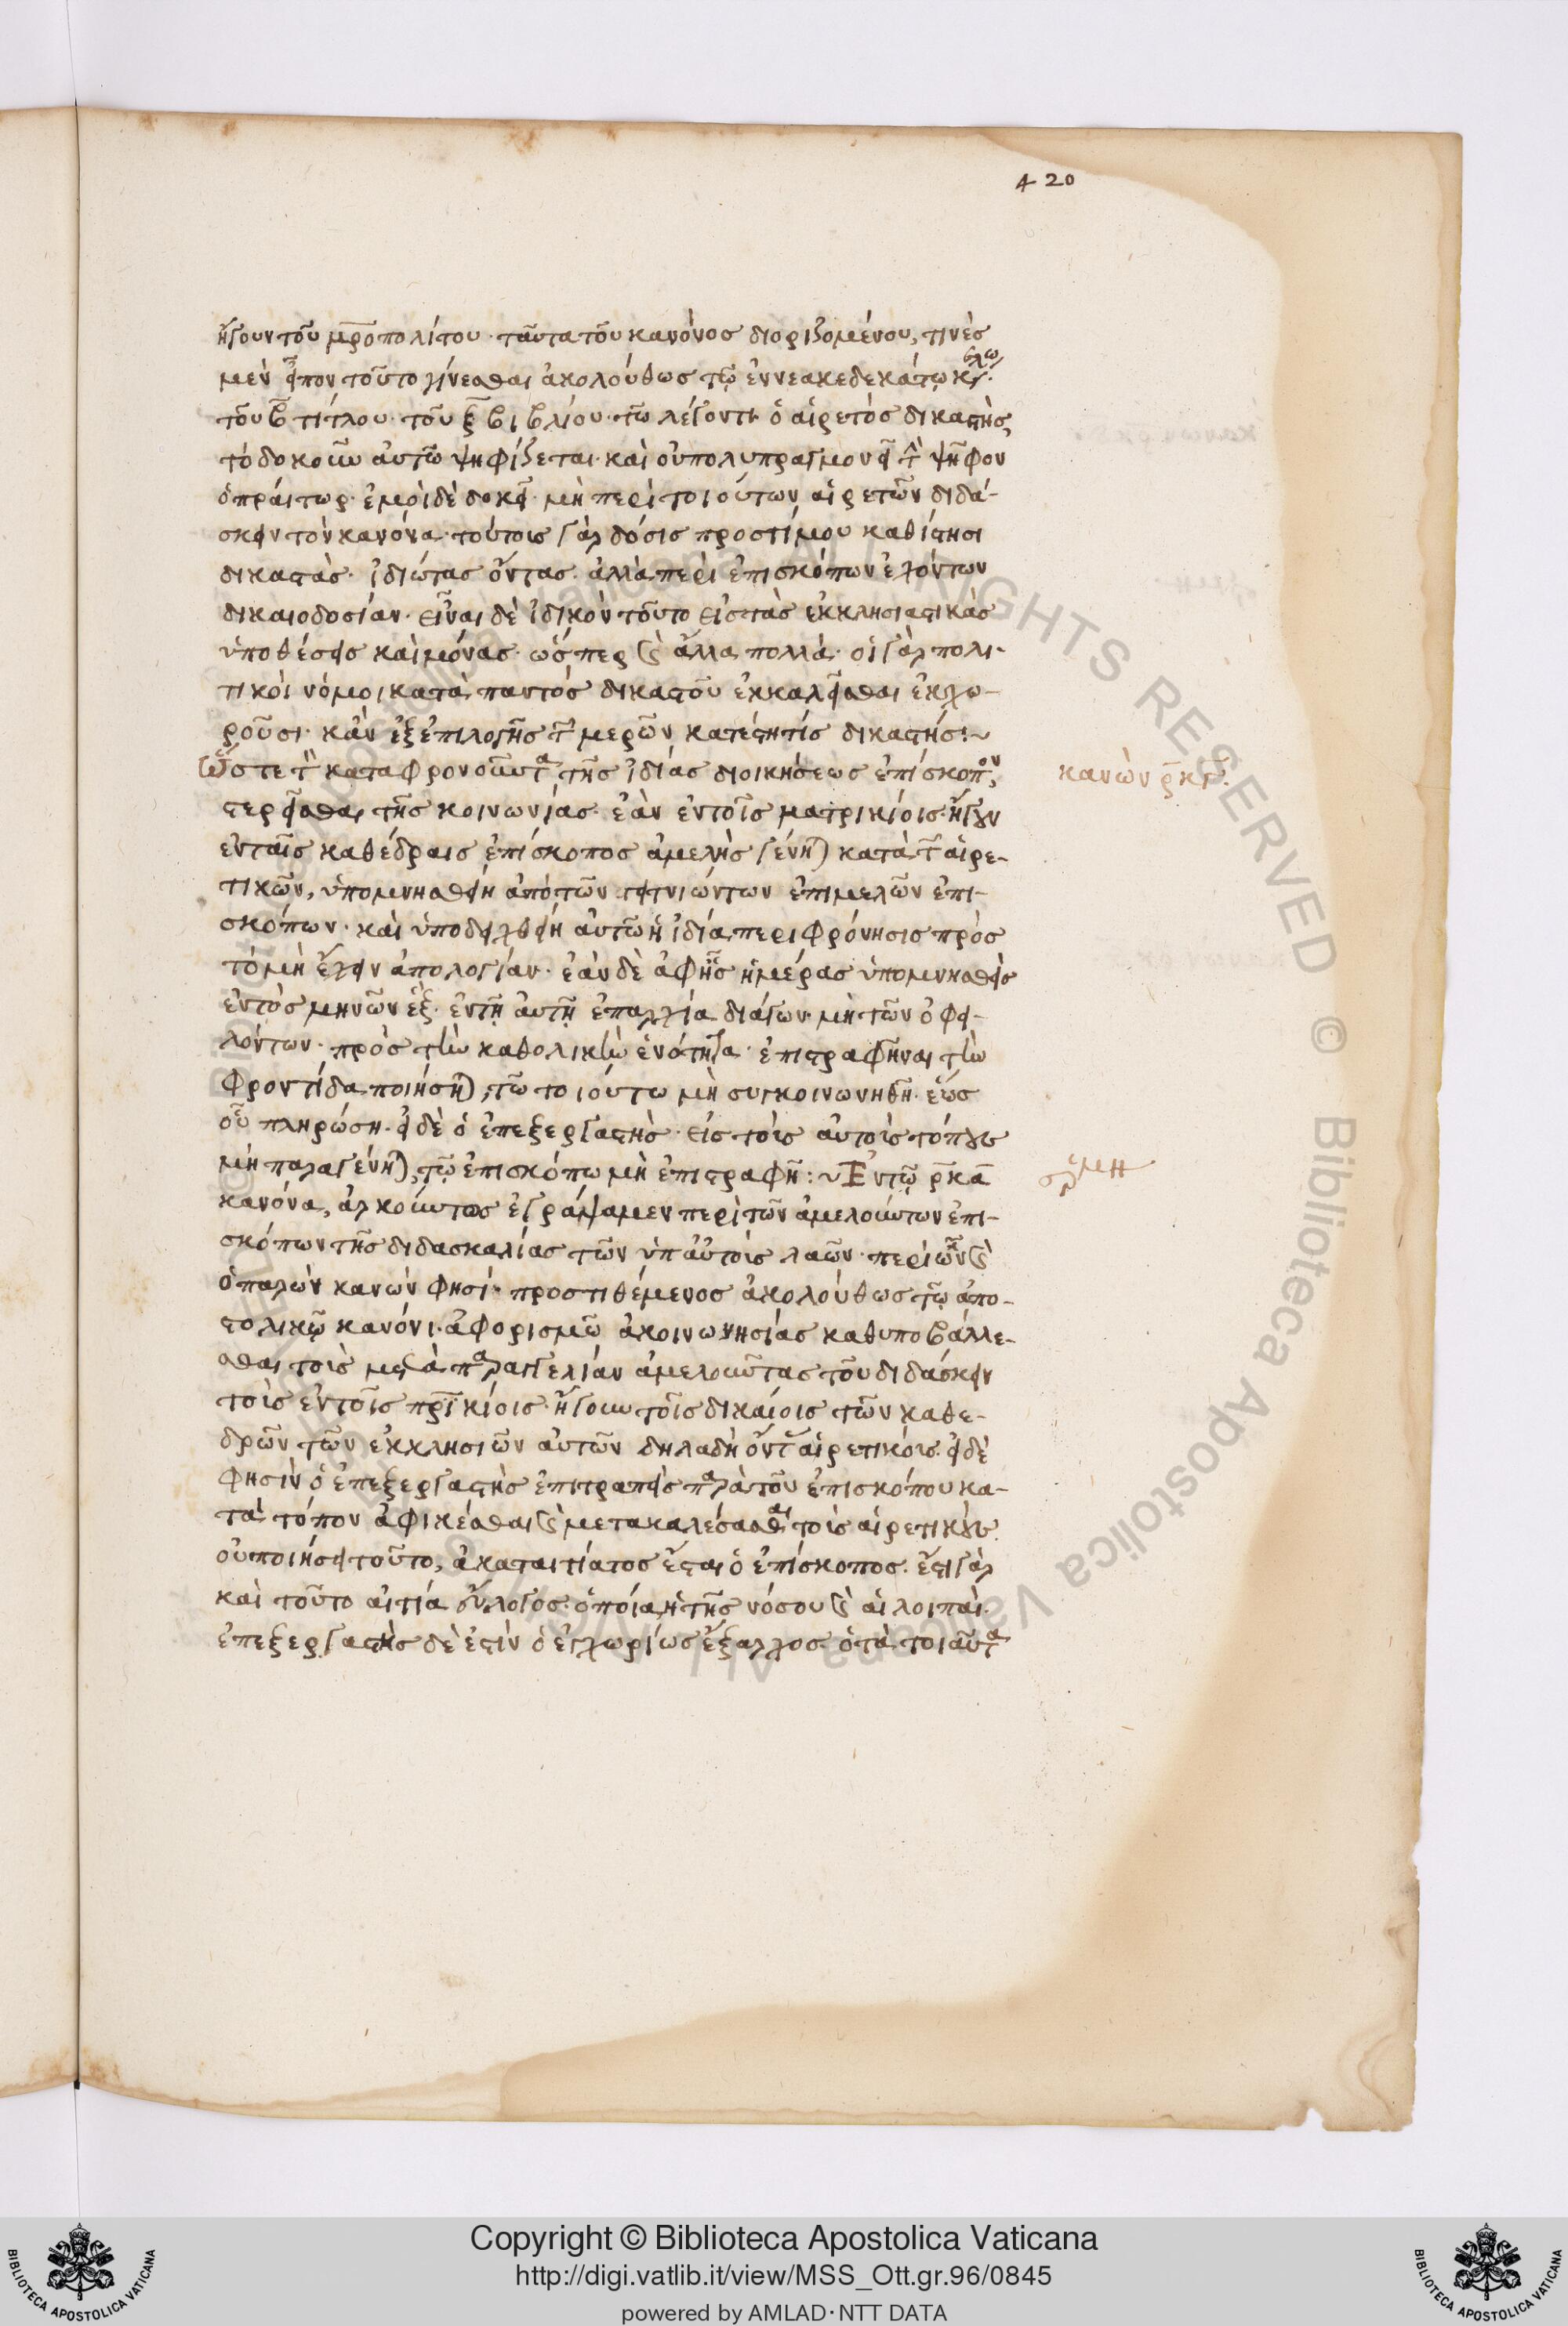 420
ἤγουν τοῦ μροπολίτου· ταῦτα τοῦ κανόνος διοριζομένου, τινὲς
μὲν εἶπον τοῦτο γίνεσθαι ἀκολούθως τῷ ἐννεακεδεκάτῳ κεφ.
τοῦ β τίτλου· τοῦ ξ βιβλίου· τῶ λέγοντι ὁ αἱρετὸς δικαστὴς,
τὸ δοκοῦν αὐτῶ ψηφίζεται· καὶ οὐ πολυπραγμονεῖ τ ψῆφον
ὁ πραίτωρ· ἐμοὶ δὲ δοκεῖ· μὴ περὶ τοιούτων αἱρετῶν διδά-
σκειν τὸν κανόνα· τούτοις γὰρ δόσις προστίμου καθίστησι
δικαστὰς· ἰδιώτας ὄντας· ἀλλὰ περὶ ἐπισκόπων ἐχόντων
δικαιοδοσίαν· εἶναι δὲ ἰδικὸν τοῦτο εἰς τὰς ἐκκλησιαστικὰς
ὑποθέσεις καὶ μόνας· ὥσπερ καὶ ἄλλα πολλὰ· οἱ γὰρ πολι-
τικοὶ νόμοι κατὰ παντὸς δικαστοῦ ἐκκαλεῖσθαι ἐκχω-
ροῦσι· κἂν ἐξ ἐπιλογῆς τ μερῶν κατέστη τίς δικαστής:~
Ὥστε τ καταφρονοῦντα τῆς ἰδίας διοικήσεως ἐπίσκοπον, κανὼν ρκγ.
στερεῖσθαι τῆς κοινωνίας· ἐὰν ἐν τοῖς ματρικίοις· ἤγουν
ἐν ταῖς καθέδραις ἐπίσκοπος ἀμελὴς γένηται κατὰ τ αἱρε-
τικῶν, ὑπομνησθείη ἀπὸ τῶν γειτνιώντων ἐπιμελῶν ἐπι-
σκόπων· καὶ ὑποδειχθείη αὐτῶ ἡ ἰδία περιφρόνησις πρὸς
τὸ μὴ ἔχειν ἀπολογίαν· ἐὰν δὲ ἀφῆς ἡμέρας ὑπομνησθεὶς
ἐντὸς μηνῶν ἓξ· ἐν τῇ αὐτῇ ἐπαρχία διάγων· μὴ τῶν ὀφει-
λόντων· πρὸς τὴν καθολικὴν ἑνότητα· ἐπιστραφῆναι τὴν
φροντίδα ποιήσηται, τῶ τοιούτω μὴ συγκοινωνηθῆ· ἕως
οὗ πληρώση· εἰ δὲ ὁ ἐπεξεργαστὴς· εἰς τοὺς αὐτοὺς τόπους
μὴ παραγένηται, τῷ ἐπισκόπω μὴ ἐπιστραφῆ:~ Ἐν τῷ ρκα σχ μη
κανόνα, ἀρκούντως ἐγράψαμεν περὶ τῶν ἀμελούντων ἐπι-
σκόπων τῆς διδασκαλίας τῶν ὑπ αὐτοὺς λαῶν· περὶ ὧν καὶ
ὁ παρὼν κανὼν φησί· προστιθέμενος ἀκολούθως τῷ ἀπο-
στολικῷ κανόνι· ἀφορισμῶ ἀκοινωνησίας καθυποβάλλε-
σθαι τοὺς μετὰ παραγγελίαν ἀμελοῦντας τοῦ διδάσκειν
τοὺς ἐν τοῖς πρικίοις· ἤγουν τοῖς δικαίοις τῶν καθε-
δρῶν τῶν ἐκκλησιῶν αὐτῶν δηλαδὴ ὄντ αἱρετικοὺς· εἰ δὲ
φησὶν ὁ ἐπεξεργαστὴς ἐπιτραπεὶς παρὰ τοῦ ἐπισκόπου κα-
τὰ τόπον ἀφικέσθαι καὶ μετακαλέσασθαι τοὺς αἱρετικοὺς
οὐ ποιήσει τοῦτο, ἀκαταιτίατος ἔσται ὁ ἐπίσκοπος· ἔστι γὰρ
καὶ τοῦτο αἰτία εὔλογος· ὁποία ἡ τῆς νόσου καὶ αἱ λοιπαὶ·
ἐπεξεργαστὴς δὲ ἐστὶν ὁ ἐγχωρίως ἔξαρχος· ὁ τὰ τοιαῦτα
Copyright © Biblioteca Apostolica Vaticana
http://digi.vatlib.it/view/MSS_Ott.gr.96/0845
powered by AMLAD·NTT DATA